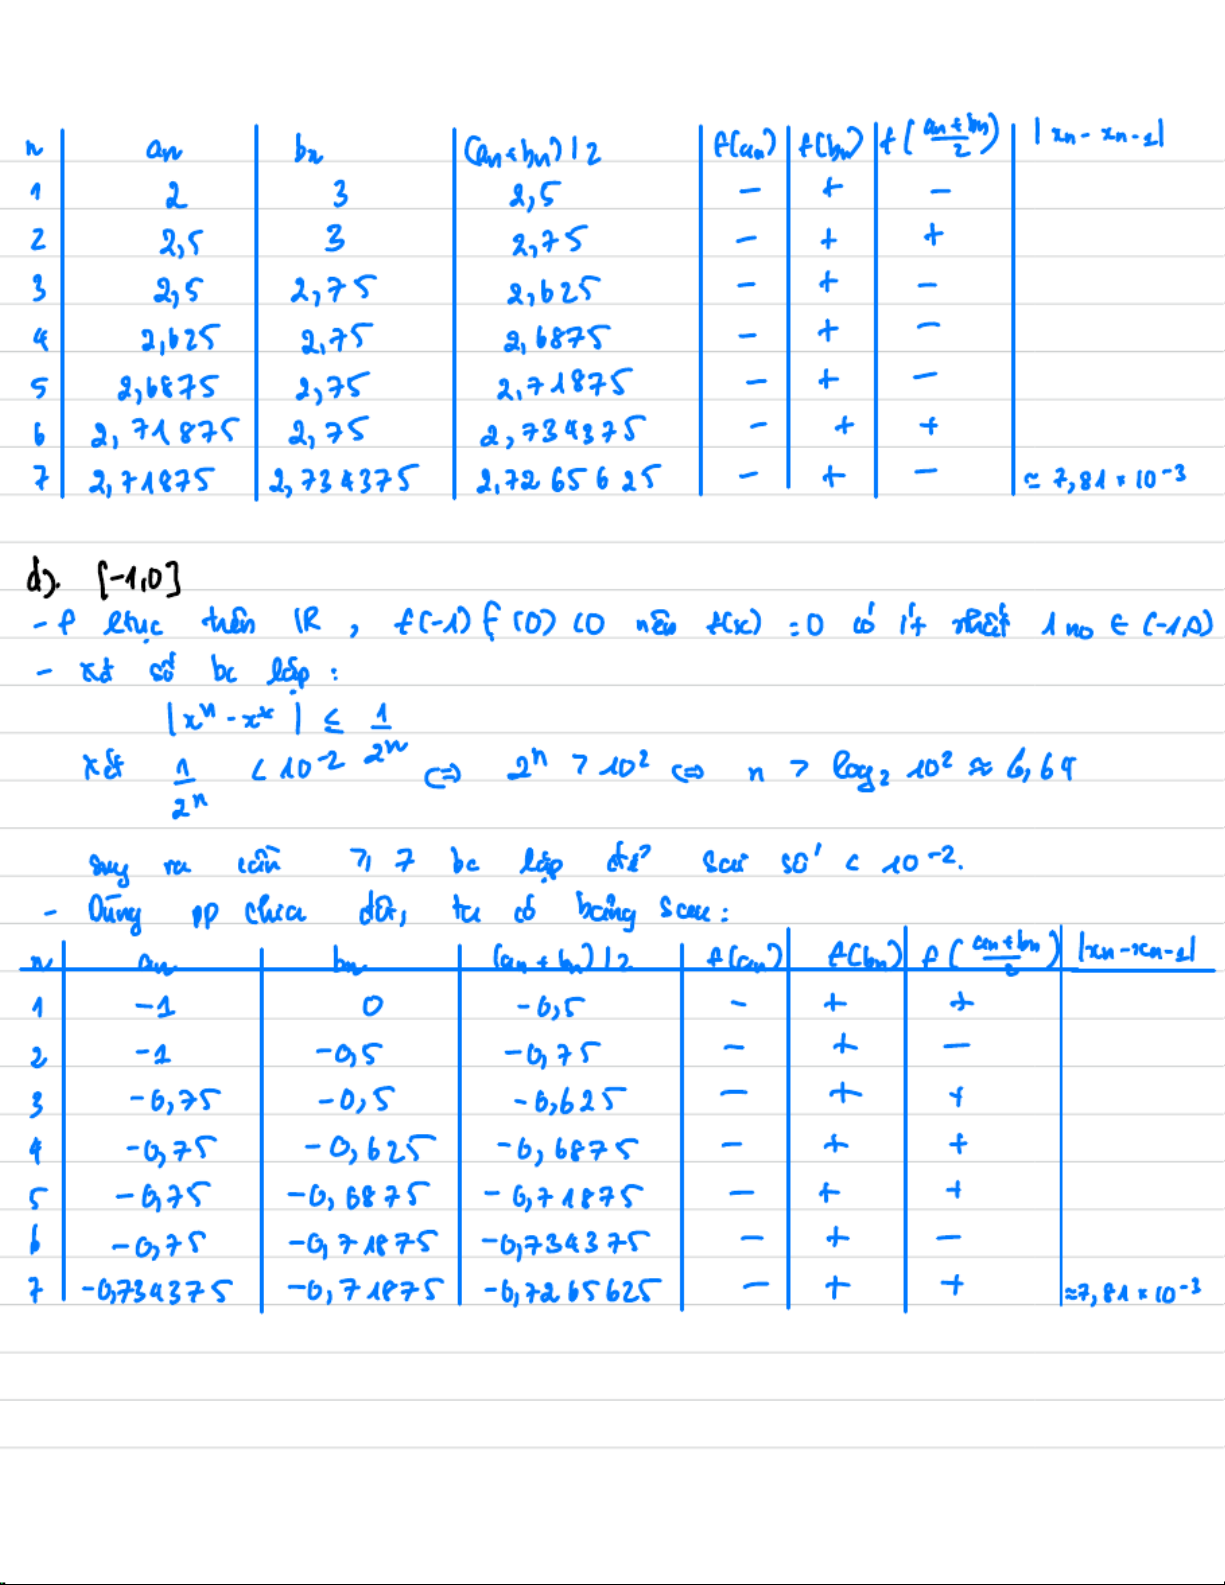 n an bn (an+bn)/2 f(an) f(bn) f((an+bn)/2) |xn - xn-1|
1 2 3 2,5 - + -
2 2,5 3 2,75 - + +
3 2,5 2,75 2,625 - + -
4 2,625 2,75 2,6875 - + -
5 2,6875 2,75 2,71875 - + -
6 2,71875 2,75 2,734375 - + +
7 2,71875 2,734375 2,7265625 - + - ≃ 7,81 * 10^-3
d). [-1,0]
- f ltục trên IR , f(-1) f(0) <0 nên f(x) =0 có ít nhất 1 no ∈ (-1,0)
- xđ số bc lặp :
|x^n - x^* | ≤ 1/2^n
xét 1/2^n < 10^-2 <=> 2^n > 10^2 <=> n > log_2 10^2 ≈ 6,64
suy ra cần ≥ 7 bc lặp để sai số < 10^-2.
- Dùng pp chia đôi, ta có bảng sau :
n an bn (an + bn)/2 f(an) f(bn) f((an+bn)/2) |xn-xn-1|
1 -1 0 -0,5 - + +
2 -1 -0,5 -0,75 - + -
3 -0,75 -0,5 -0,625 - + +
4 -0,75 -0,625 -0,6875 - + +
5 -0,75 -0,6875 -0,71875 - + +
6 -0,75 -0,71875 -0,734375 - + -
7 -0,734375 -0,71875 -0,7265625 - + + ≈7,81 * 10^-3